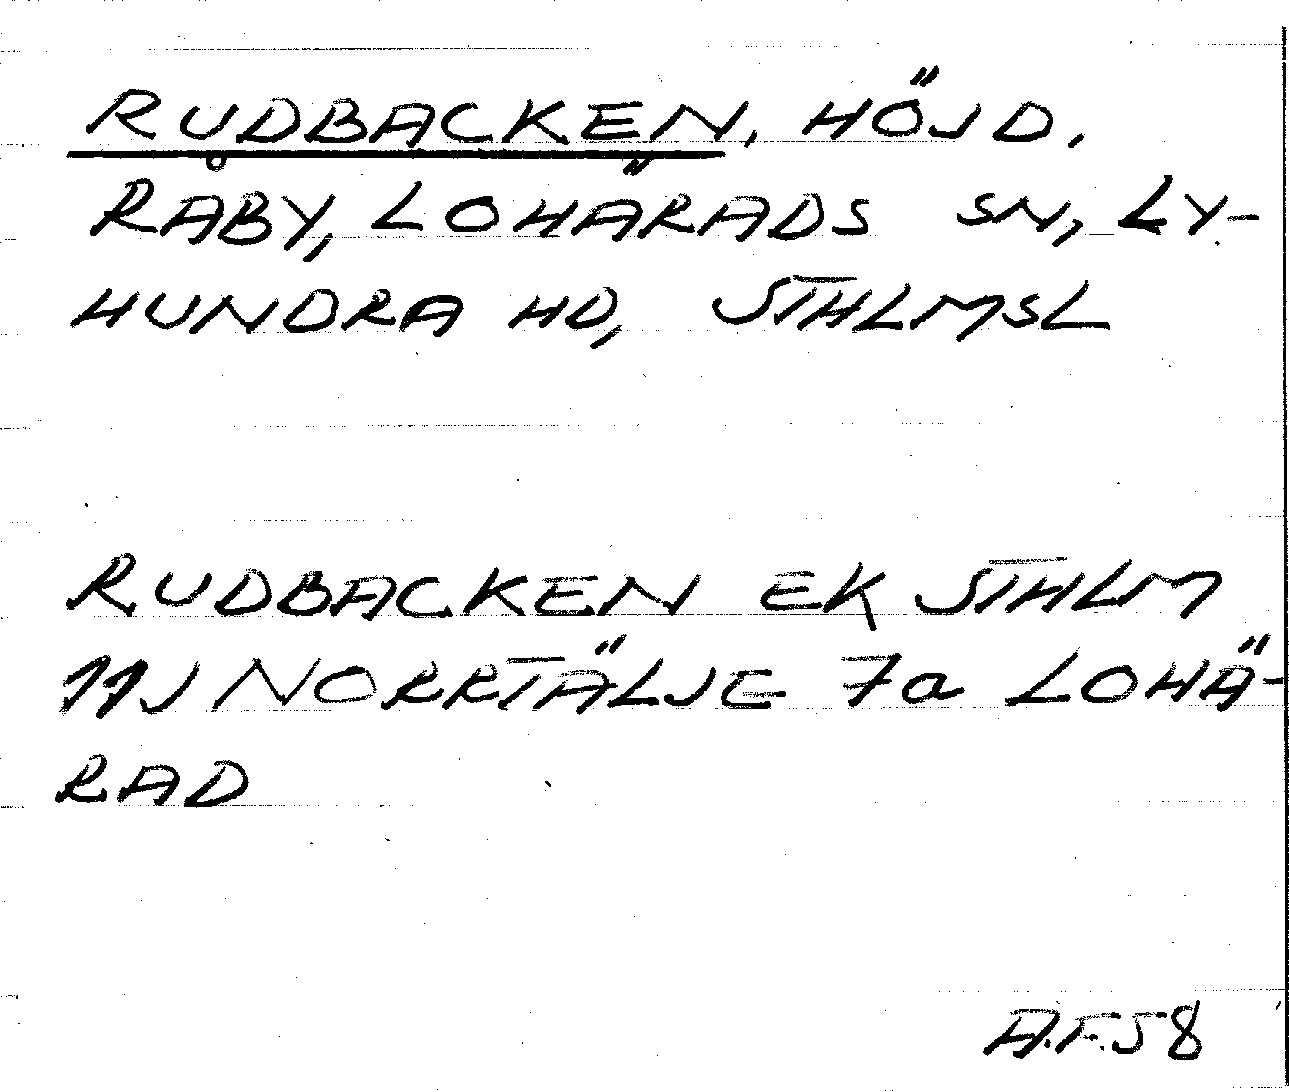 RUDBACKEN, HÖJD,
RÅBY, LOHÄRADS SN, LY-
HUNDRA HD, STHLMSL
RUDBACKEN EK STHLM
11J NORRTÄLJE 7a LOHÄ-
RAD
A.F.58